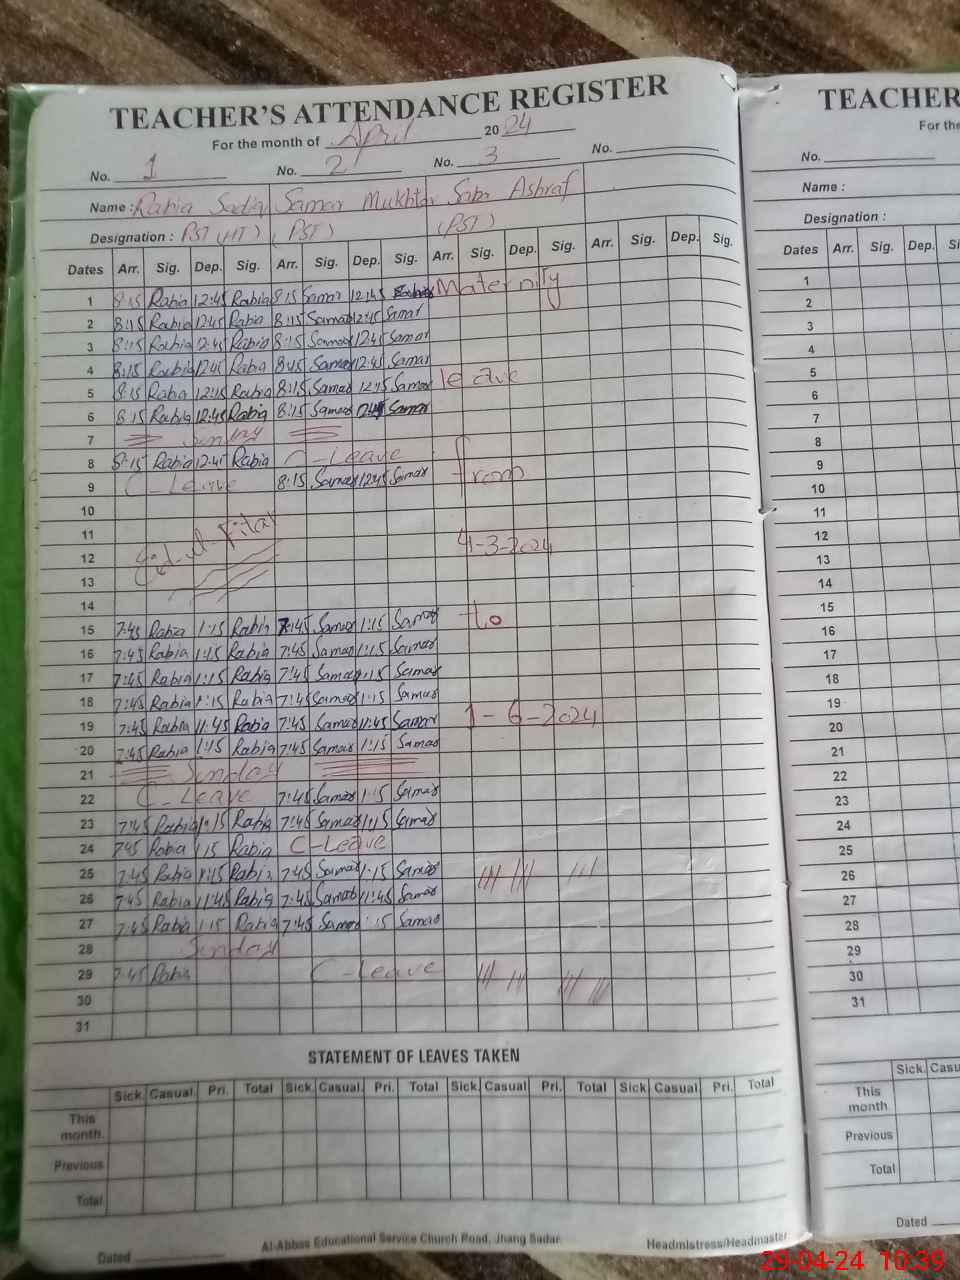 TEACHER'S ATTENDANCE REGISTER
For the month of April 2024
No. 1 No. 2 No. 3 No.
Name : Rabia Sadiq Samar Mukhtar Saba Ashraf
Designation : PST (HT) (PST) (PST)
Dates Arr. Sig. Dep. Sig. Arr. Sig. Dep. Sig. Arr. Sig. Dep. Sig. Arr. Sig. Dep. Sig.
1 8:15 Rabia 12:45 Rabia 8:15 Samar 12:45 Maternity
2 8:15 Rabia 12:45 Rabia 8:15 Samar 12:45 Samar
3 8:15 Rabia 12:45 Rabia 8:15 Samar 12:45 Samar
4 8:15 Rabia 12:45 Rabia 8:15 Samar 12:45 Samar
5 8:15 Rabia 12:45 Rabia 8:15 Samar 12:45 Samar leave
6 8:15 Rabia 12:45 Rabia 8:15 Samar 12:45 Samar
7 Sunday
8 8:15 Rabia 12:45 Rabia C-Leave
9 C-Leave 8:15 Samar 12:45 Samar from
10
11 Eid-ul-Fitar
12 4-3-2024
13
14
15 7:45 Rabia 1:15 Rabia 7:45 Samar 1:15 Samar to
16 7:45 Rabia 1:15 Rabia 7:45 Samar 1:15 Samar
17 7:45 Rabia 1:15 Rabia 7:45 Samar 1:15 Samar
18 7:45 Rabia 1:15 Rabia 7:45 Samar 1:15 Samar
19 7:45 Rabia 11:45 Rabia 7:45 Samar 11:45 Samar 1-6-2024
20 7:45 Rabia 1:15 Rabia 7:45 Samar 1:15 Samar
21 Sunday
22 C-Leave 7:45 Samar 1:15 Samar
23 7:45 Rabia 1:15 Rabia 7:45 Samar 1:15 Samar
24 7:45 Rabia 1:15 Rabia C-Leave
25 7:45 Rabia 1:15 Rabia 7:45 Samar 1:15 Samar
26 7:45 Rabia 11:45 Rabia 7:45 Samar 11:45 Samar
27 7:45 Rabia 1:15 Rabia 7:45 Samar 1:15 Samar
28 Sunday
29 7:45 Rabia C-Leave
30
31
STATEMENT OF LEAVES TAKEN
Sick. Casual. Pri. Total Sick. Casual. Pri. Total Sick. Casual Pri. Total Sick. Casual. Pri. Total
This month.
Previous
Total
Dated
Al-Abbas Educational Service Church Road, Jhang Sadar.
Headmistress/Headmaster
TEACHER
For the
No.
Name :
Designation :
Dates Arr. Sig. Dep.
1
2
3
4
5
6
7
8
9
10
11
12
13
14
15
16
17
18
19
20
21
22
23
24
25
26
27
28
29
30
31
Sick.
This month
Previous
Total
Dated
29-04-24 10:39